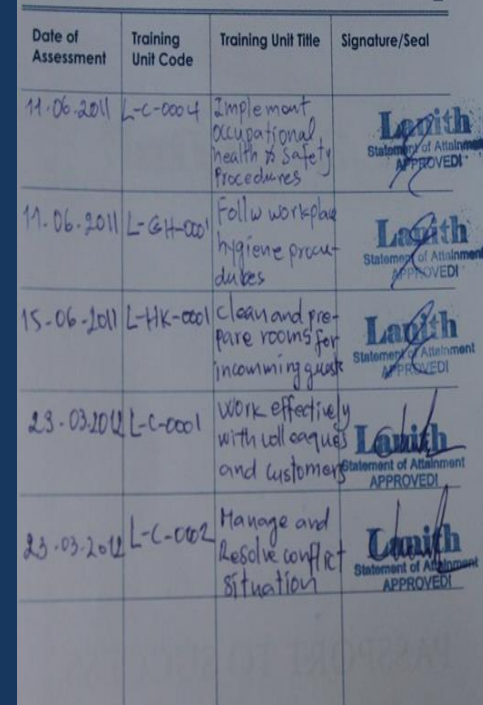 Date of Assessment
Training Unit Code
Training Unit Title
Signature/Seal
11.06.2011
L-C-0004
Implemont
occupational
health & Safety
Procedures
Lanith
Statement of Attainment
APPROVED!
11.06.2011
L-GH-0001
Follw workplace
hygiene procu-
dures
Lanith
Statement of Attainment
APPROVED!
15-06-2011
L-HK-0001
Clean and pre-
pare rooms for
incomming guest
Lanith
Statement of Attainment
APPROVED!
23.03.2012
L-C-0001
Work effectively
with colleaques
and customers
Lanith
Statement of Attainment
APPROVED!
23.03.2012
L-C-0002
Manage and
Resolve conflict
Situation
Lanith
Statement of Attainment
APPROVED!